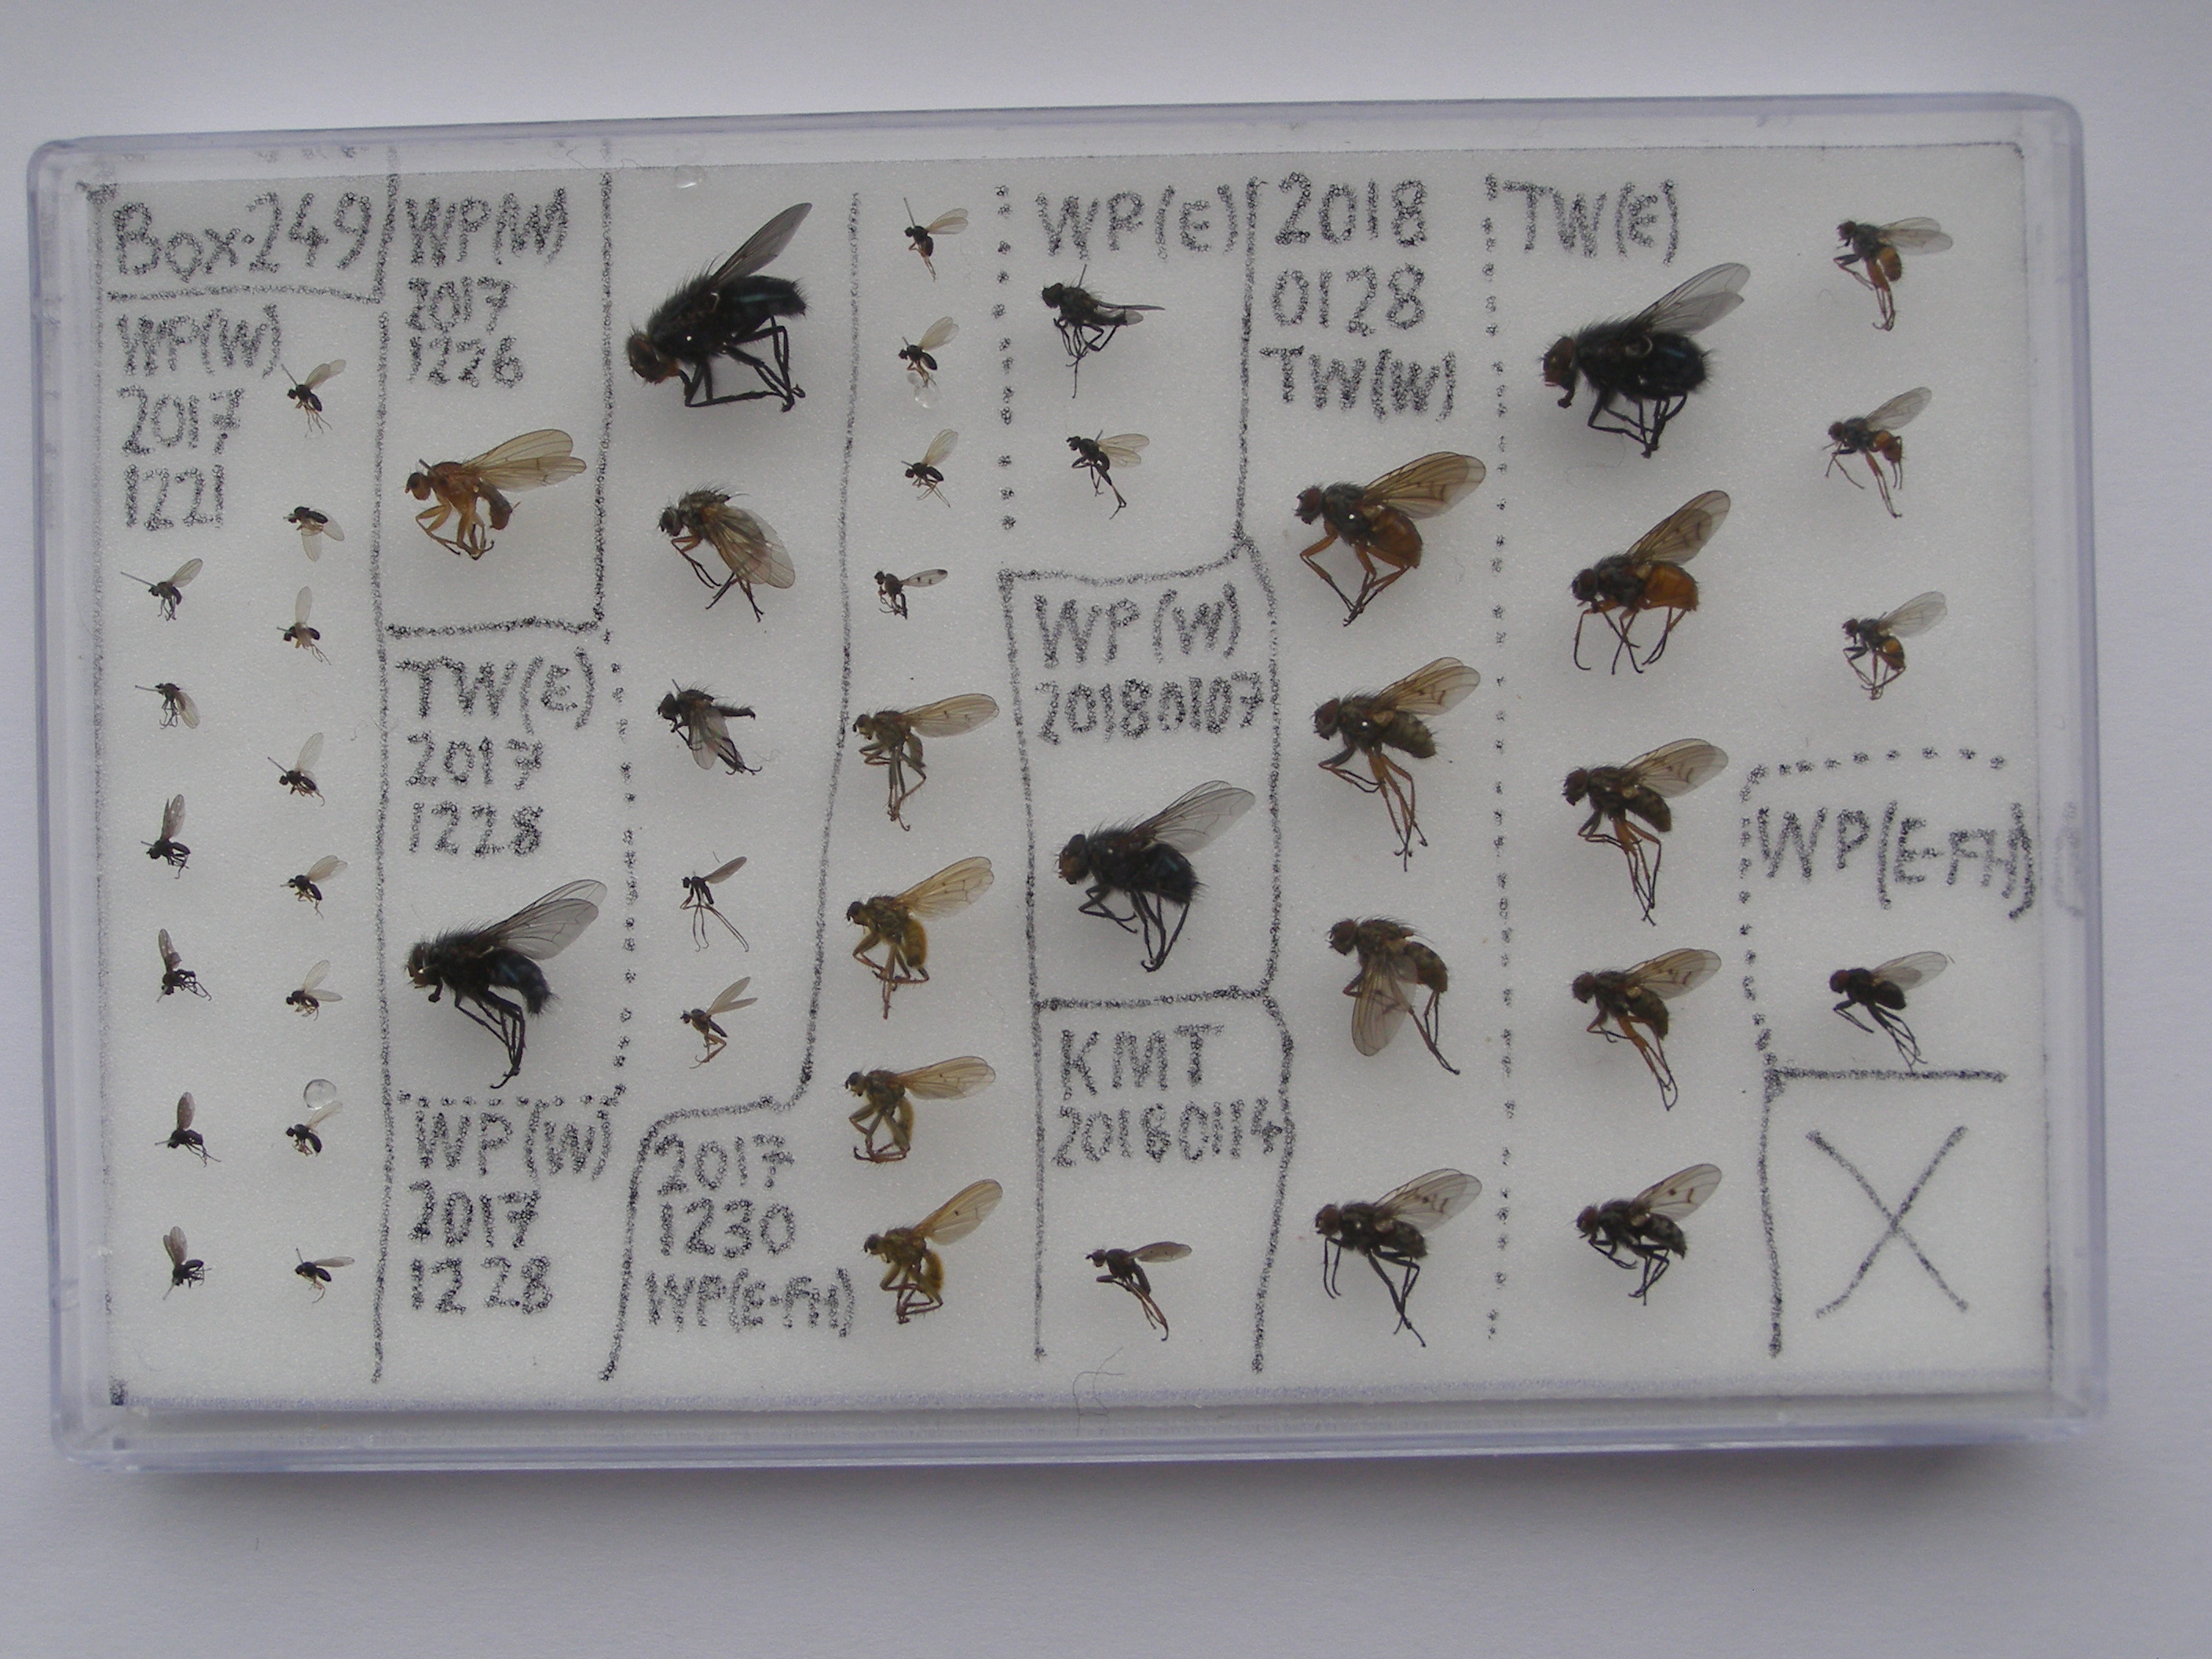 Box·249
WP(W)
2017
1221
WP(W)
2017
1226
TW(E)
2017
1228
WP(W)
2017
1228
2017
1230
WP(E-FH)
WP(E)
WP(W)
20180107
KMT
20180114
2018
0128
TW(W)
TW(E)
WP(E-FH)
X